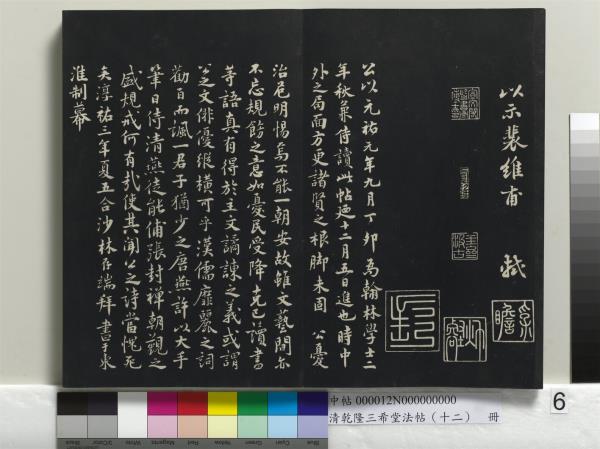 以示裴維甫 軾
公以元祐元年九月丁卯為翰林學士二
年秋兼侍讀此帖乃十二月五日進也時中
外之局面方更諸賢之根腳未固 公憂
治危明惕焉不能一朝安故雖文藝間亦
不忘規飭之意如憂民受降克己讀書
等語真有得於主文譎諫之義或謂
公之文俳優縱橫可乎漢儒靡麗之詞
勸百而諷一君子猶少之唐燕許以大手
筆日侍清燕徒能鋪張封禪朝覲之
盛規戒何有哉使其聞公之詩當愧死
矣淳祐三年夏五合沙林存端拜書于來
淮制幕
中帖 000012N000000000
清乾隆三希堂法帖（十二） 冊
6
Blue
Cyan
Green
Yellow
Red
Magenta
White
3/Color
Black